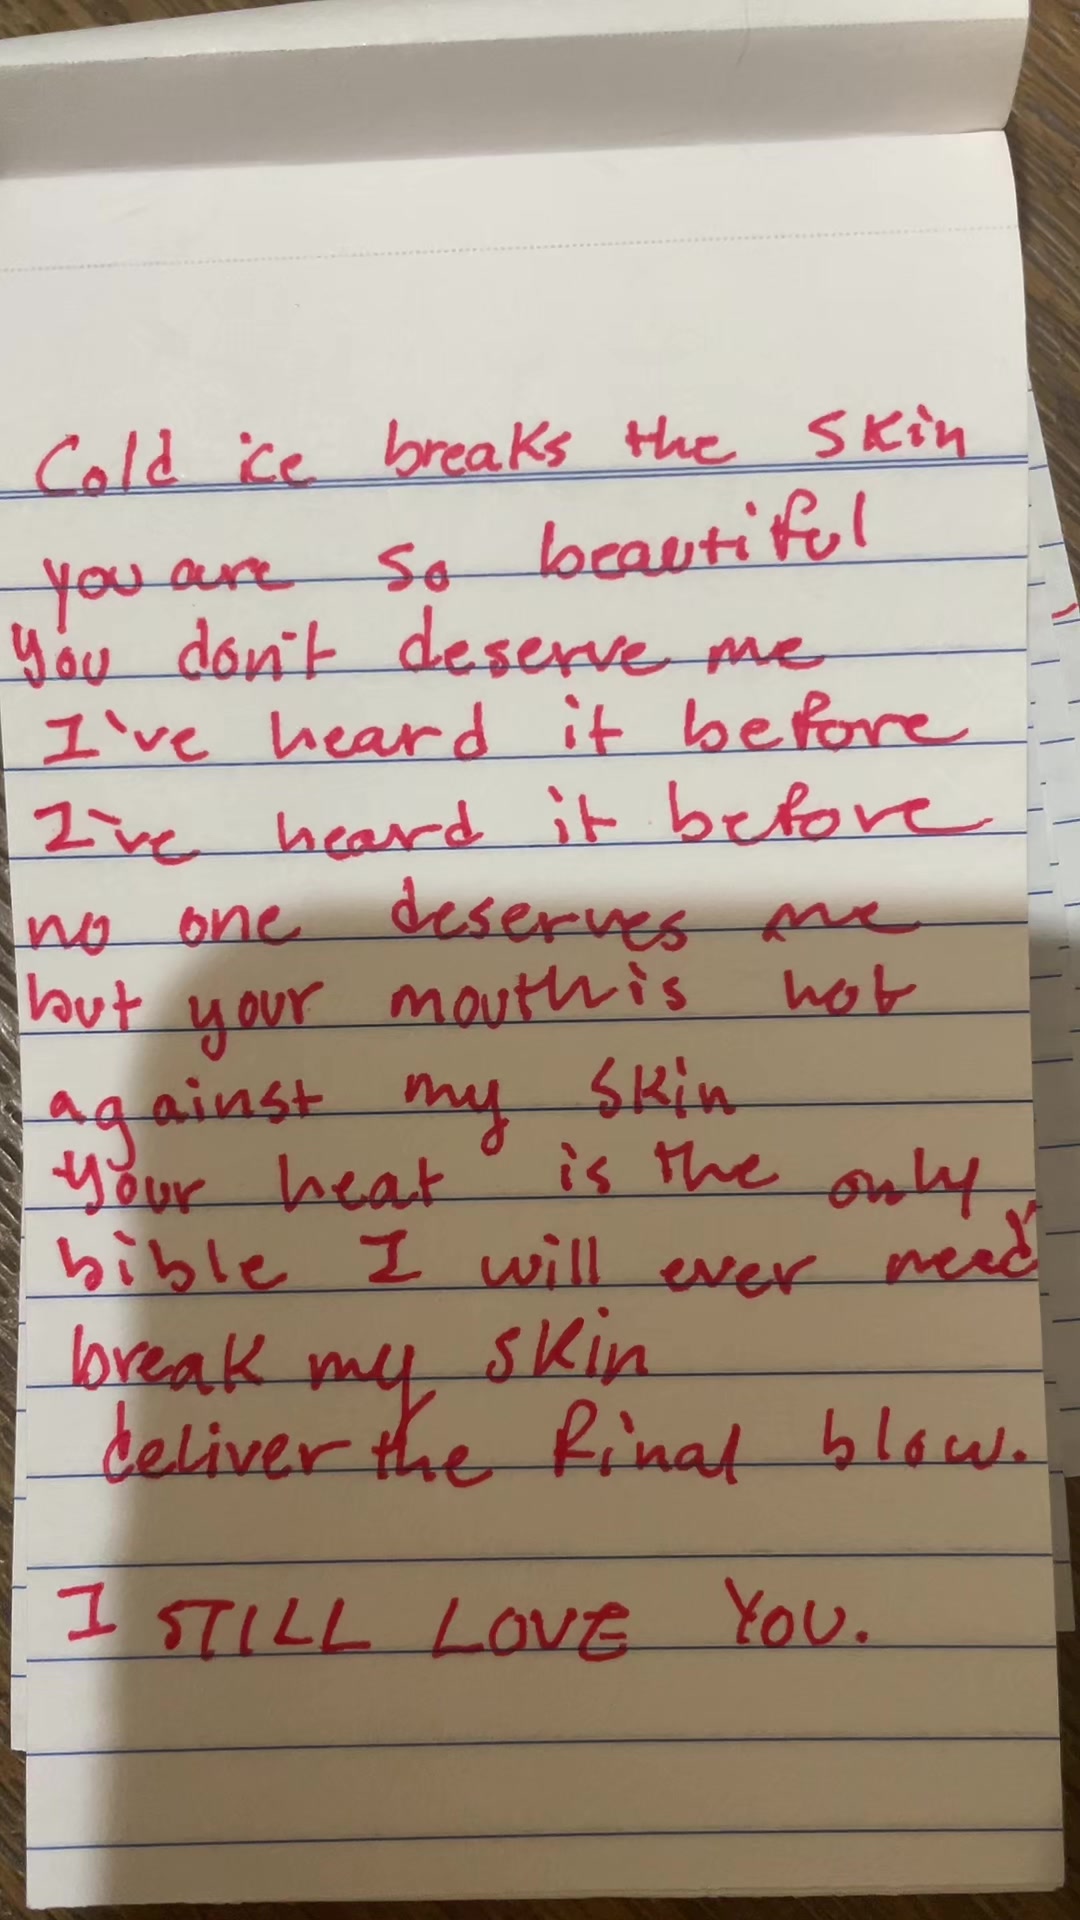 Cold ice breaks the skin
you are so beautiful
you don't deserve me
I've heard it before
I've heard it before
no one deserves me
but your mouth is hot
against my skin
your heat is the only
bible I will ever need
break my skin
deliver the final blow.
I STILL LOVE YOU.